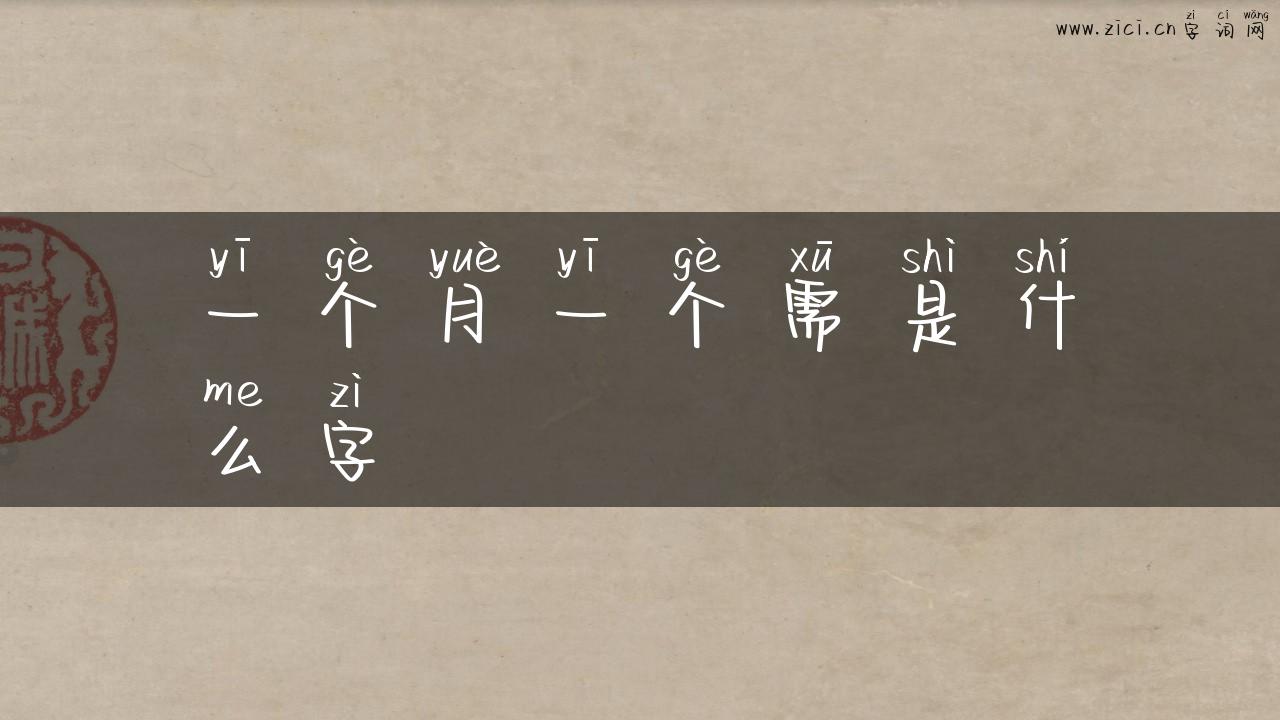 zì cí wǎng
www.zici.cn 字词网
yī gè yuè yī gè xū shì shí
一个月一个需是什
me zì
么字